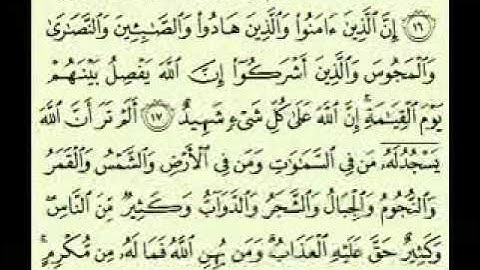 ١٦ إِنَّ ٱلَّذِينَ ءَامَنُوا۟ وَٱلَّذِينَ هَادُوا۟ وَٱلصَّـٰبِـِٔينَ وَٱلنَّصَـٰرَىٰ
وَٱلْمَجُوسَ وَٱلَّذِينَ أَشْرَكُوٓا۟ إِنَّ ٱللَّهَ يَفْصِلُ بَيْنَهُمْ
يَوْمَ ٱلْقِيَـٰمَةِ ۚ إِنَّ ٱللَّهَ عَلَىٰ كُلِّ شَىْءٍ شَهِيدٌ ١٧ أَلَمْ تَرَ أَنَّ ٱللَّهَ
يَسْجُدُ لَهُۥ مَن فِى ٱلسَّمَـٰوَٰتِ وَمَن فِى ٱلْأَرْضِ وَٱلشَّمْسُ وَٱلْقَمَرُ
وَٱلنُّجُومُ وَٱلْجِبَالُ وَٱلشَّجَرُ وَٱلدَّوَآبُّ وَكَثِيرٌ مِّنَ ٱلنَّاسِ ۖ
وَكَثِيرٌ حَقَّ عَلَيْهِ ٱلْعَذَابُ ۗ وَمَن يُهِنِ ٱللَّهُ فَمَا لَهُۥ مِن مُّكْرِمٍ ۚ